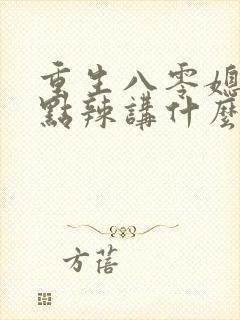 重生八零媳
點辣講什麼
方蓓